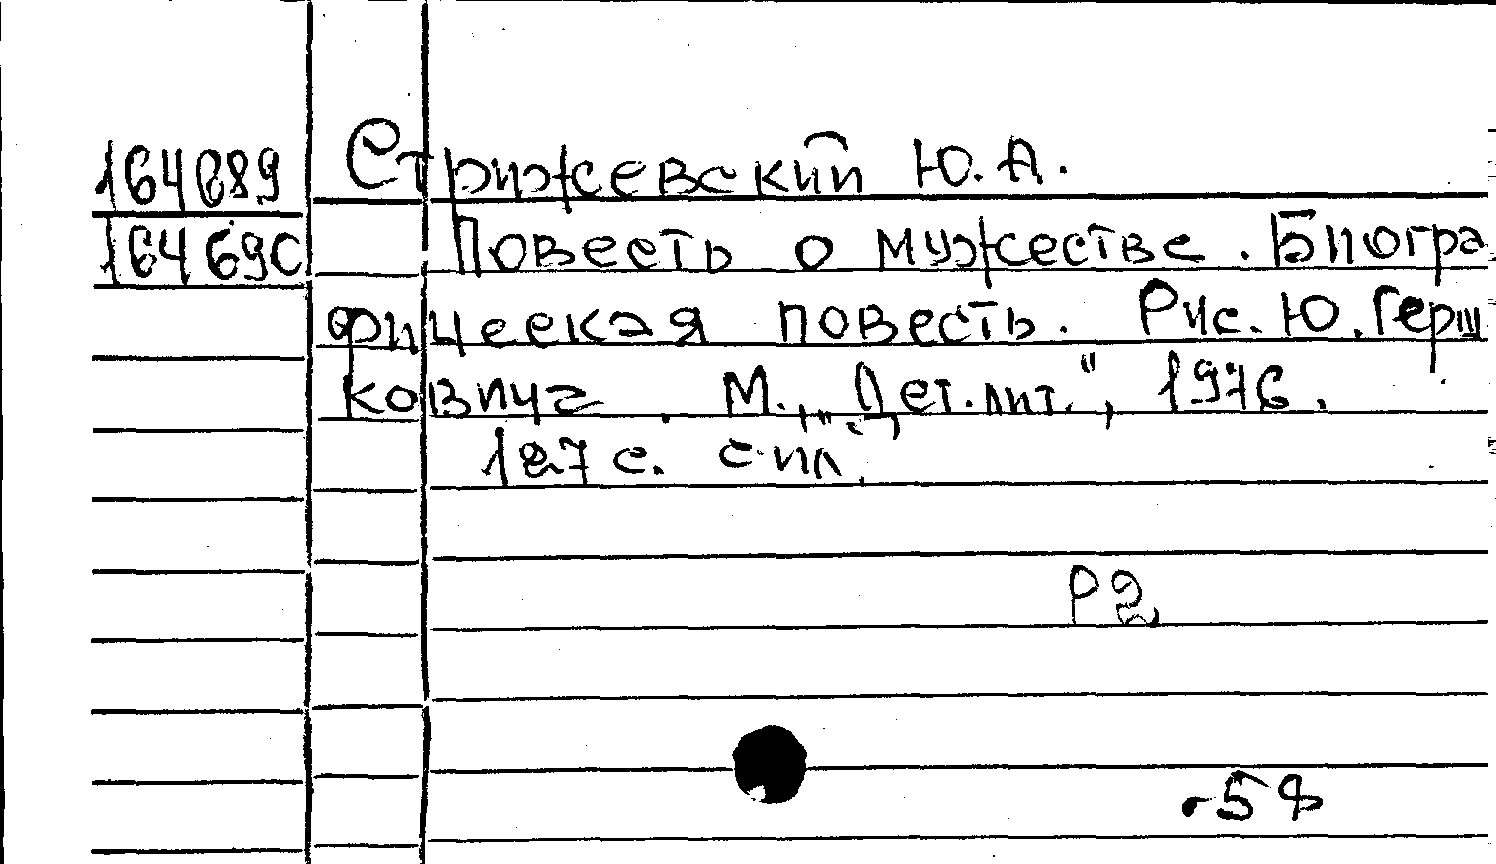 164689 Стрижевский Ю.А.
164690 Повесть о мужестве. Биогра
фическая повесть. Рис. Ю. Герш
ковича. М., „Дет. лит.", 1976.
127 с. с ил.
Р2
-58